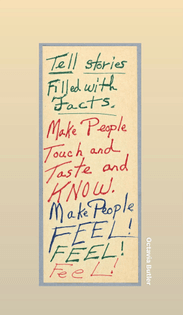 Tell stories
Filled with
Facts.
Make People
Touch and
Taste and
KNOW.
Make People
FEEL!
FEEL!
FeeL!
Octavia Butler